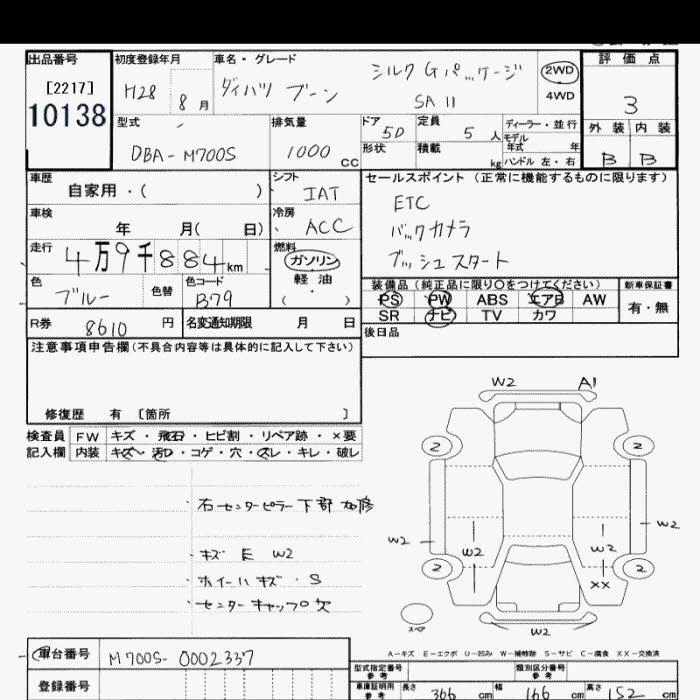 出品番号 初度登録年月 車名・グレード 評価点
[2217]
10138
H28 8月
ダイハツ ブーン シルク Gパッケージ SA II
2WD
4WD
3
外装 内装
B B
型式 排気量 ドア 5D 定員 5人 ディーラー・並行
モデル年式 年
DBA-M700S 1000cc 形状 積載 kg ハンドル 左・右
車歴 シフト セールスポイント (正常に機能するものに限ります)
自家用・( ) IAT
ETC
車検 冷房
年 月( 日) ACC
バックカメラ
走行 燃料
4万9千884km ガソリン
プッシュスタート
軽油
色 色替 色コード
ブルー B79 ( )
装備品 (純正品に限り○をつけてください) 新車保証書
PS PW ABS エアB AW 有・無
SR ナビ TV カワ
R券 8610円 名変通知期限 月 日
後日品
注意事項申告欄(不具合内容等は具体的に記入して下さい)
修復歴 有 〔箇所 〕
検査員 FW キズ・飛石・ヒビ割・リペア跡・×要
記入欄 内装 キズ・汚れ・コゲ・穴・スレ・キレ・破レ
W2 A1
2 2
・右センターピラー下部 加修
W2 W2 W2 W2
・キズ E W2
2 2
・ホイールキズ・S
XX
・センターキャップ欠
スペア
W2
A-キズ E-エクボ U-凹み W-補修跡 S-サビ C-腐食 XX-交換済
車台番号 M700S-0002337
型式指定番号 参考 類別区分番号 参考
登録番号
車庫証明用 参考 長さ 366cm 幅 166cm 高さ 152cm